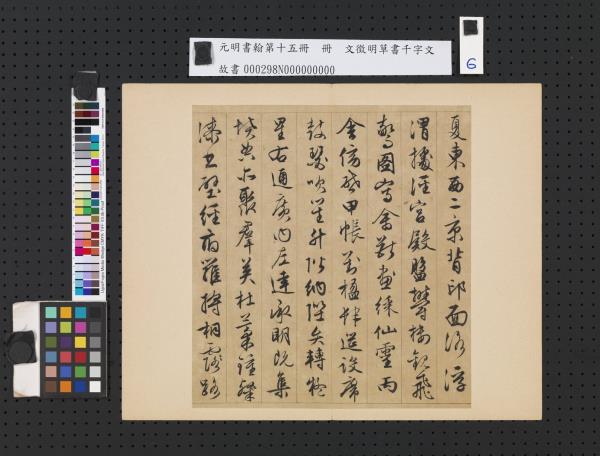 元明書翰第十五冊 冊 文徵明草書千字文
故書 000298N000000000
6
夏東西二京背邙面洛浮
渭據涇宮殿盤鬱樓觀飛
驚圖寫禽獸畫綵仙靈丙
舍傍啟甲帳對楹肆筵設席
鼓瑟吹笙升階納陛弁轉疑
星右通廣內左達承明既集
墳典亦聚群英杜稾鍾隸
漆書壁經府羅將相路